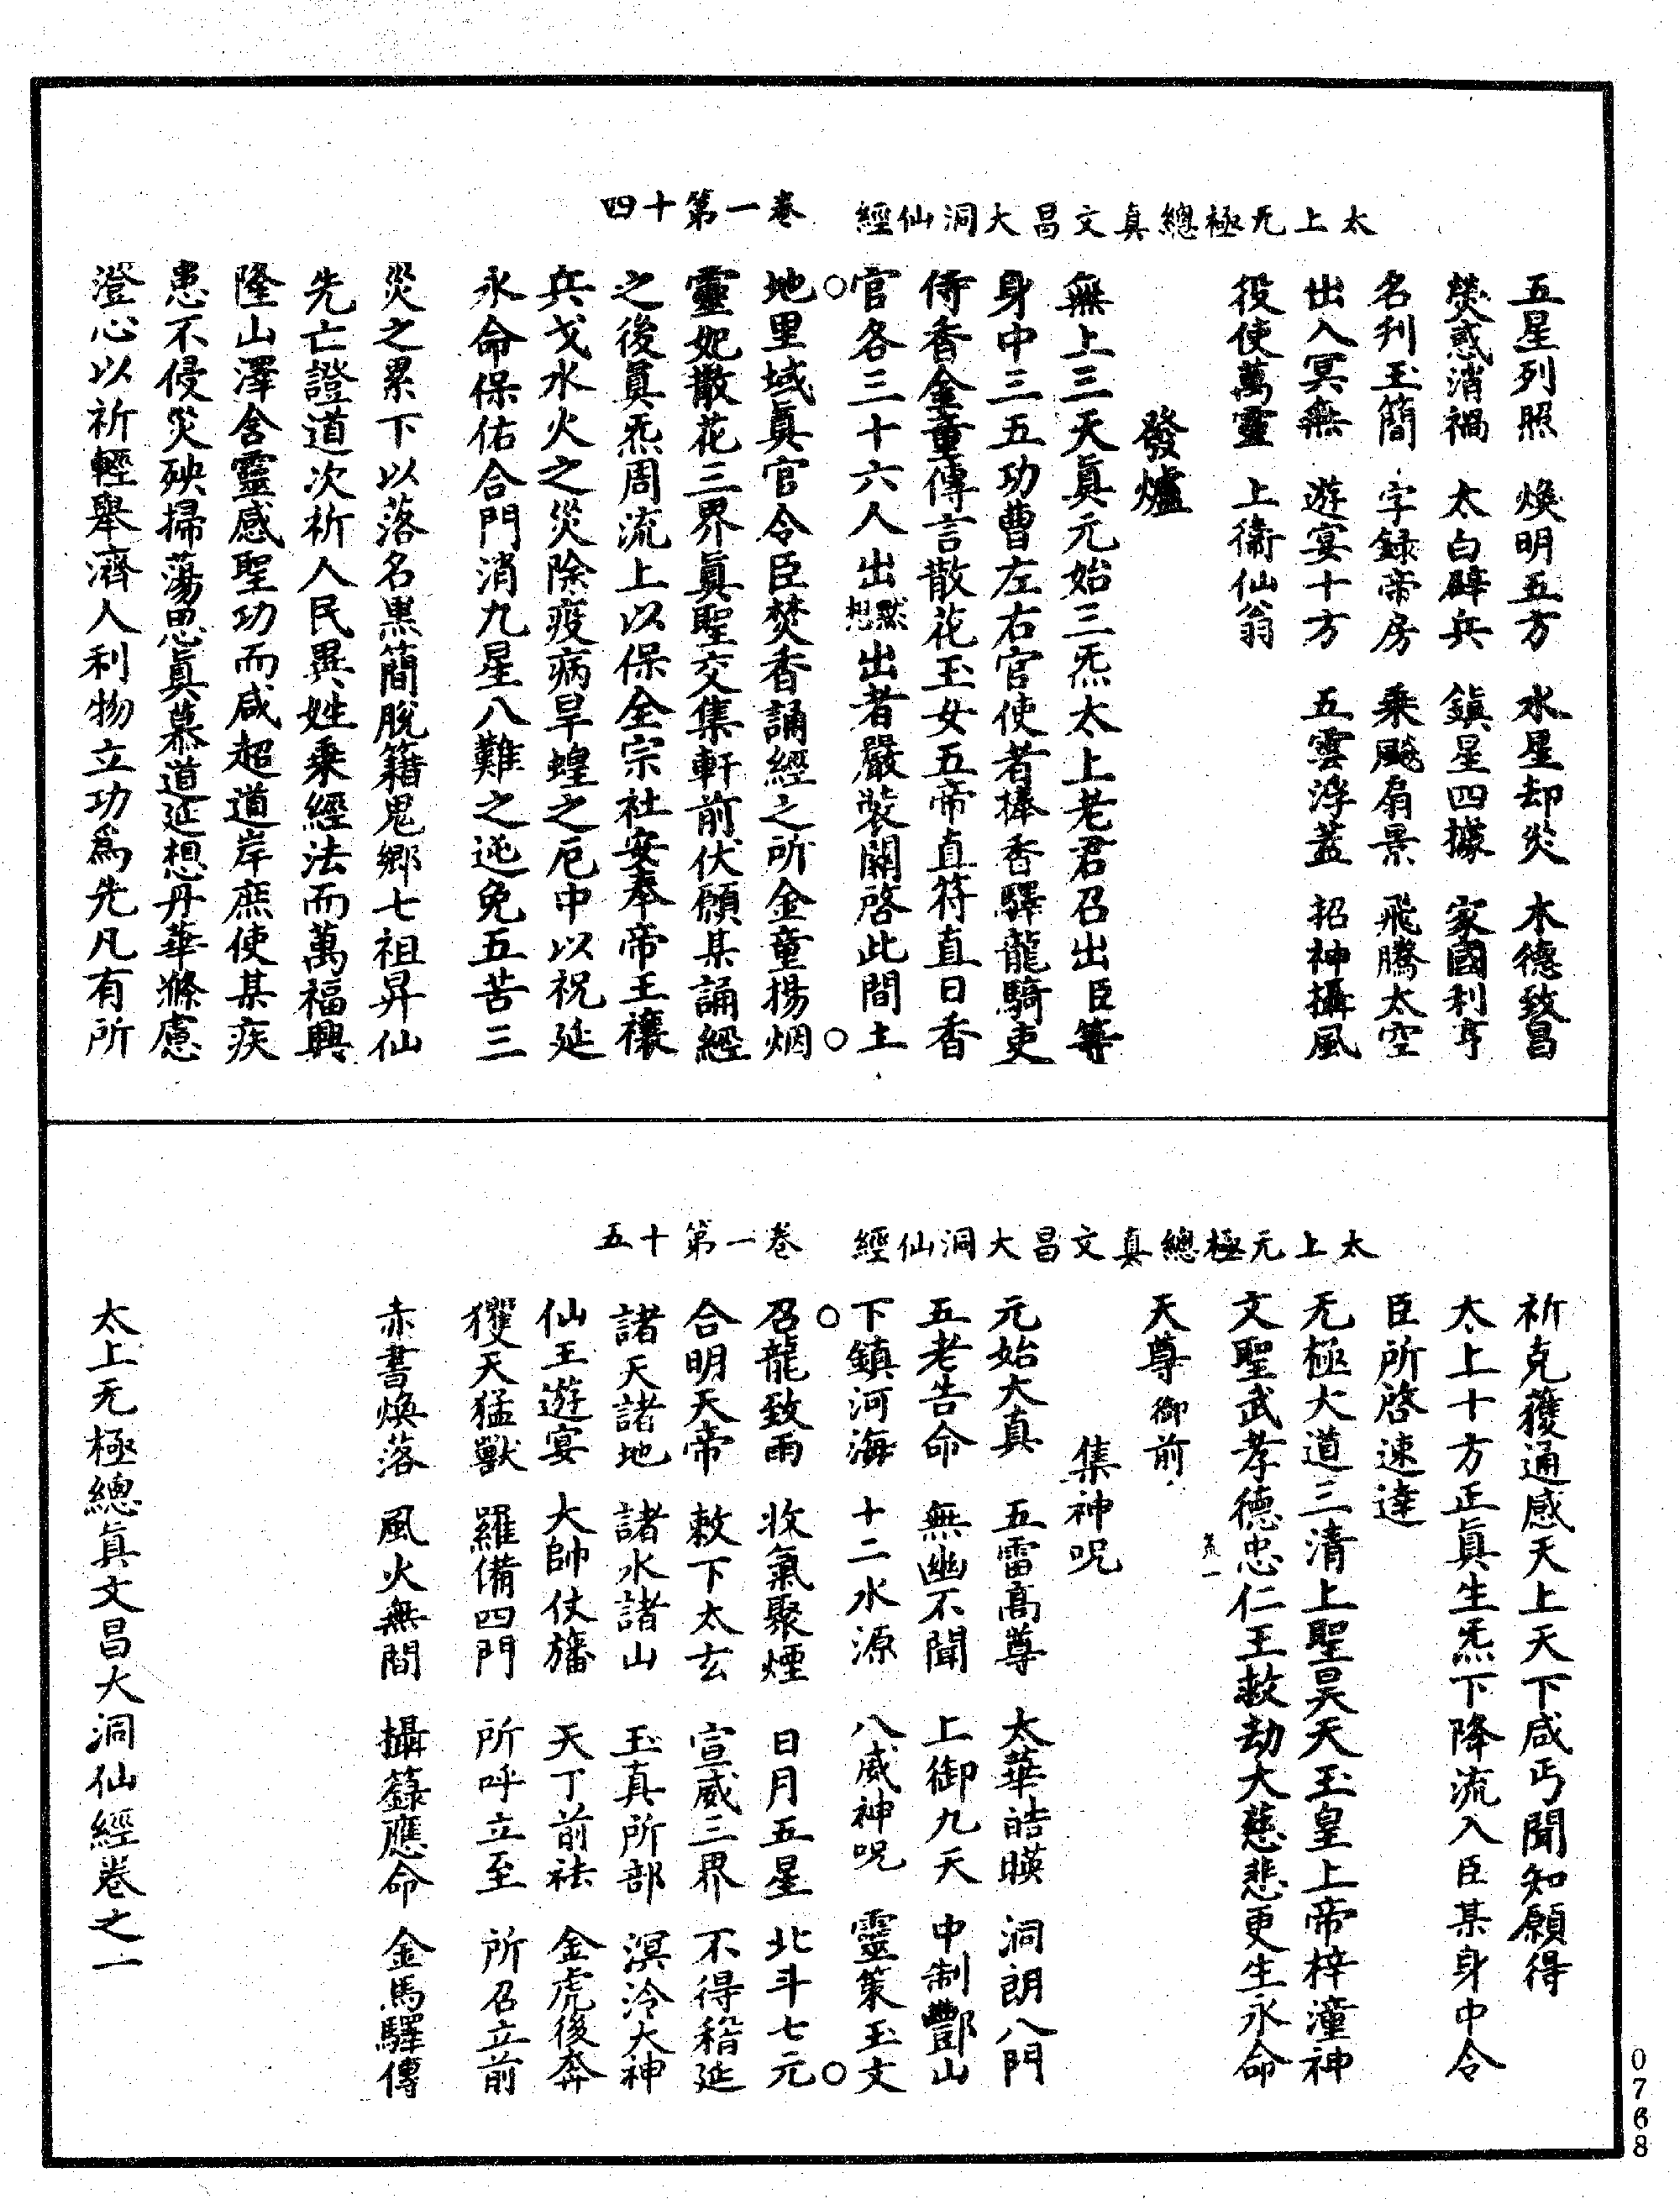 太上无極總真文昌大洞仙經　卷一第十四
五星列照　煥明五方　水星却災　木德致昌
熒惑消禍　太白辟兵　鎮星四據　家國利亨
名刋玉簡　字録帝房　乘飈扇景　飛騰太空
出入冥無　遊宴十方　五雲浮蓋　招神攝風
役使萬靈　上衞仙翁
發爐
無上三天真元始三炁太上老君召出臣等
身中三五功曹左右官使者捧香驛龍騎吏
侍香金童傳言散花玉女五帝直符直日香
官各三十六人出默想出者嚴裝關啓此間土
地里域真官令臣焚香誦經之所金童揚烟
靈妃散花三界真聖交集軒前伏願某誦經
之後真炁周流上以保全宗社安奉帝王禳
兵戈水火之災除疫病旱蝗之厄中以祝延
永命保佑合門消九星八難之迍免五苦三
災之累下以落名黑簡脫籍鬼鄉七祖昇仙
先亡證道次祈人民異姓乘經法而萬福興
隆山澤含靈感聖功而咸超道岸庶使某疾
患不侵災殃掃蕩思真慕道延想丹華滌慮
澄心以祈輕舉濟人利物立功爲先凡有所
太上元極總真文昌大洞仙經　卷一第十五
祈克獲通感天上天下咸丐聞知願得
太上十方正真生炁下降流入臣某身中令
臣所啓速達
无極大道三清上聖昊天玉皇上帝梓潼神
文聖武孝德忠仁王救劫大慈悲更生永命
天尊御前
集神呪
元始大真　五雷高尊　太華皓暎　洞朗八門
五老告命　無幽不聞　上御九天　中制酆山
下鎮河海　十二水源　八威神呪　靈策玉文
召龍致雨　收氣聚煙　日月五星　北斗七元
合明天帝　敕下太玄　宣威三界　不得稽延
諸天諸地　諸水諸山　玉真所部　溟泠大神
仙王遊宴　大帥仗旛　天丁前祛　金虎後奔
玃天猛獸　羅備四門　所呼立至　所召立前
赤書煥落　風火無間　攝籙應命　金馬驛傳
太上无極總真文昌大洞仙經卷之一
0768